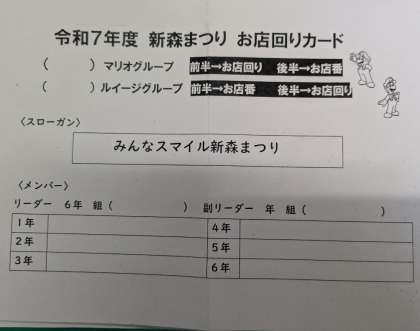 令和7年度 新森まつり お店回りカード
（　　）マリオグループ 前半→お店回り 後半→お店番
（　　）ルイージグループ 前半→お店番 後半→お店回り
〈スローガン〉
みんなスマイル新森まつり
〈メンバー〉
リーダー 6年 組（　　　　） 副リーダー 年 組（　　　　）
1年 4年
2年 5年
3年 6年